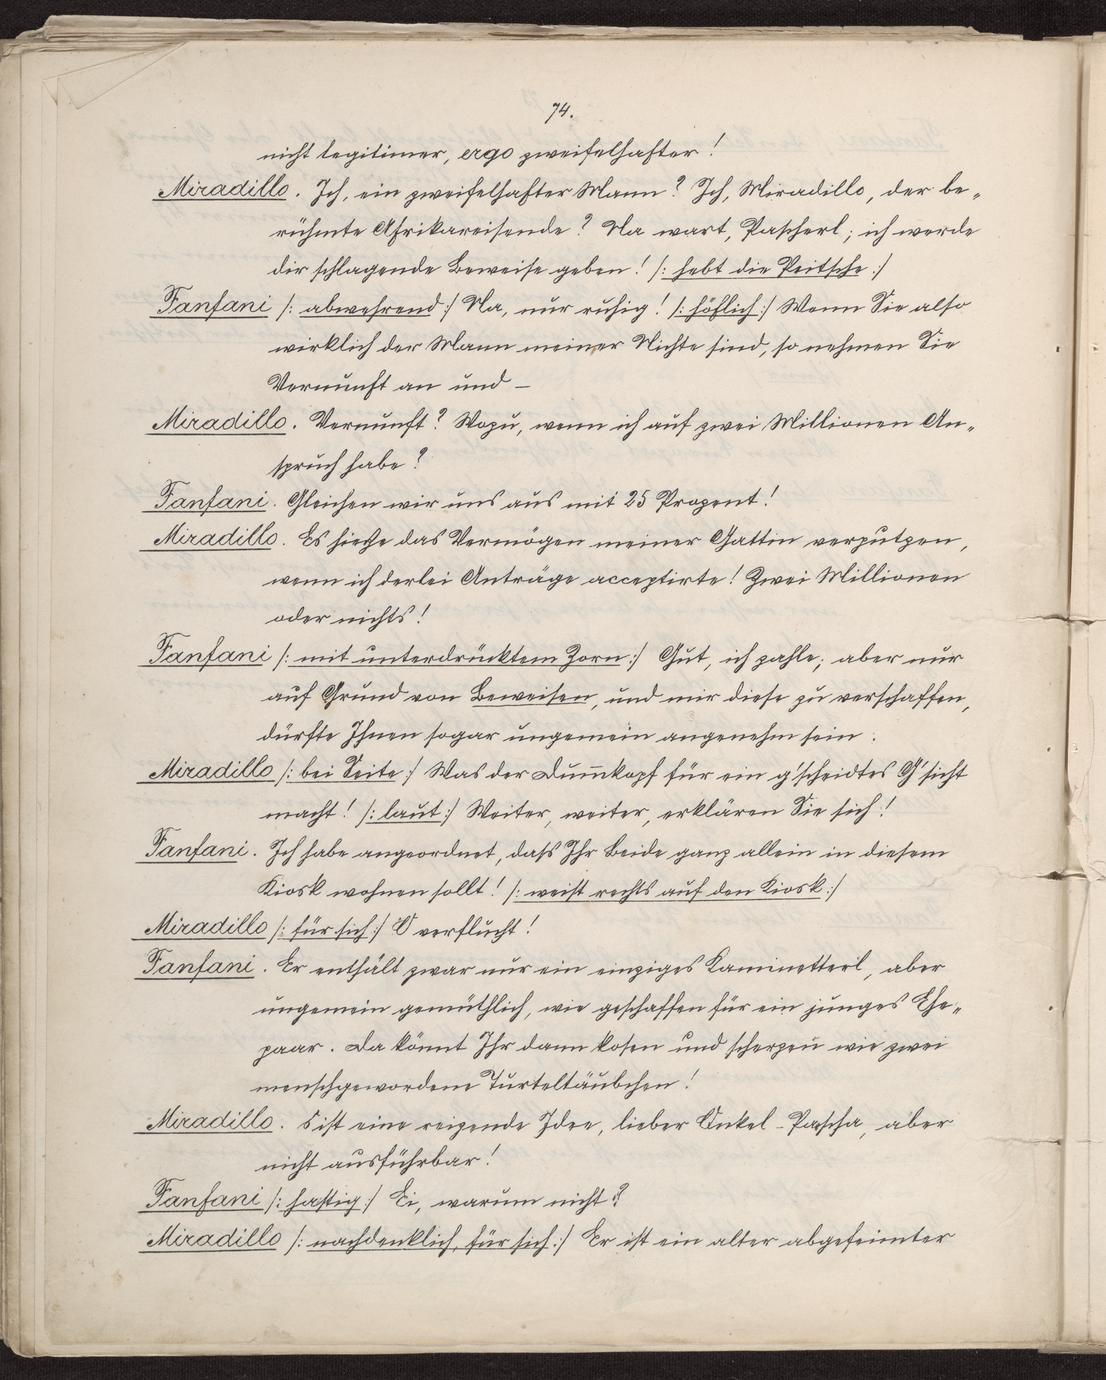 74.
nicht legitimer, ergo zweifelhafter!
Miradillo. Ich, ein zweifelhafter Mann? Ich, Miradillo, der be-
rühmte Afrikareisende? Na wart, Pascherl; ich werde
dir schlagende Beweise geben! /: hebt die Peitsche :/
Fanfani /: abwehrend :/ Na, nur ruhig! /: höflich :/ Wenn Sie also
wirklich der Mann meiner Nichte sind, so nehmen Sie
Vernunft an und –
Miradillo. Vernunft? Wozu, wenn ich auf zwei Millionen An-
spruch habe?
Fanfani. Gleichen wir uns aus mit 25 Prozent!
Miradillo. Es hieße das Vermögen meiner Gattin verputzen,
wenn ich derlei Anträge acceptirte! Zwei Millionen
oder nichts!
Fanfani /: mit unterdrücktem Zorn :/ Gut, ich zahle; aber nur
auf Grund von Beweisen, und mir diese zu verschaffen,
dürfte Ihnen sogar ungemein angenehm sein.
Miradillo /: bei Seite :/ Was der Dum̄kopf für ein g'scheidtes G'sicht
macht! /: laut :/ Weiter, weiter, erklären Sie sich!
Fanfani. Ich habe angeordnet, daß Ihr Beide ganz allein in diesem
Kiosk wohnen sollt! /: weist rechts auf den Kiosk :/
Miradillo /: für sich :/ O verflucht!
Fanfani. Er enthält zwar nur ein einziges Kaminetterl, aber
ungemein gemüthlich, wie geschaffen für ein junges Ehe-
paar. Da könnt Ihr dann kosen und scherzen wie zwei
menschgewordene Turteltäubchen!
Miradillo. S'ist eine reizende Idee, lieber Onkel-Pascha, aber
nicht ausführbar!
Fanfani /: hastig :/ Ei, warum nicht?
Miradillo /: nachdenklich, für sich :/ Er ist ein alter abgefeimter